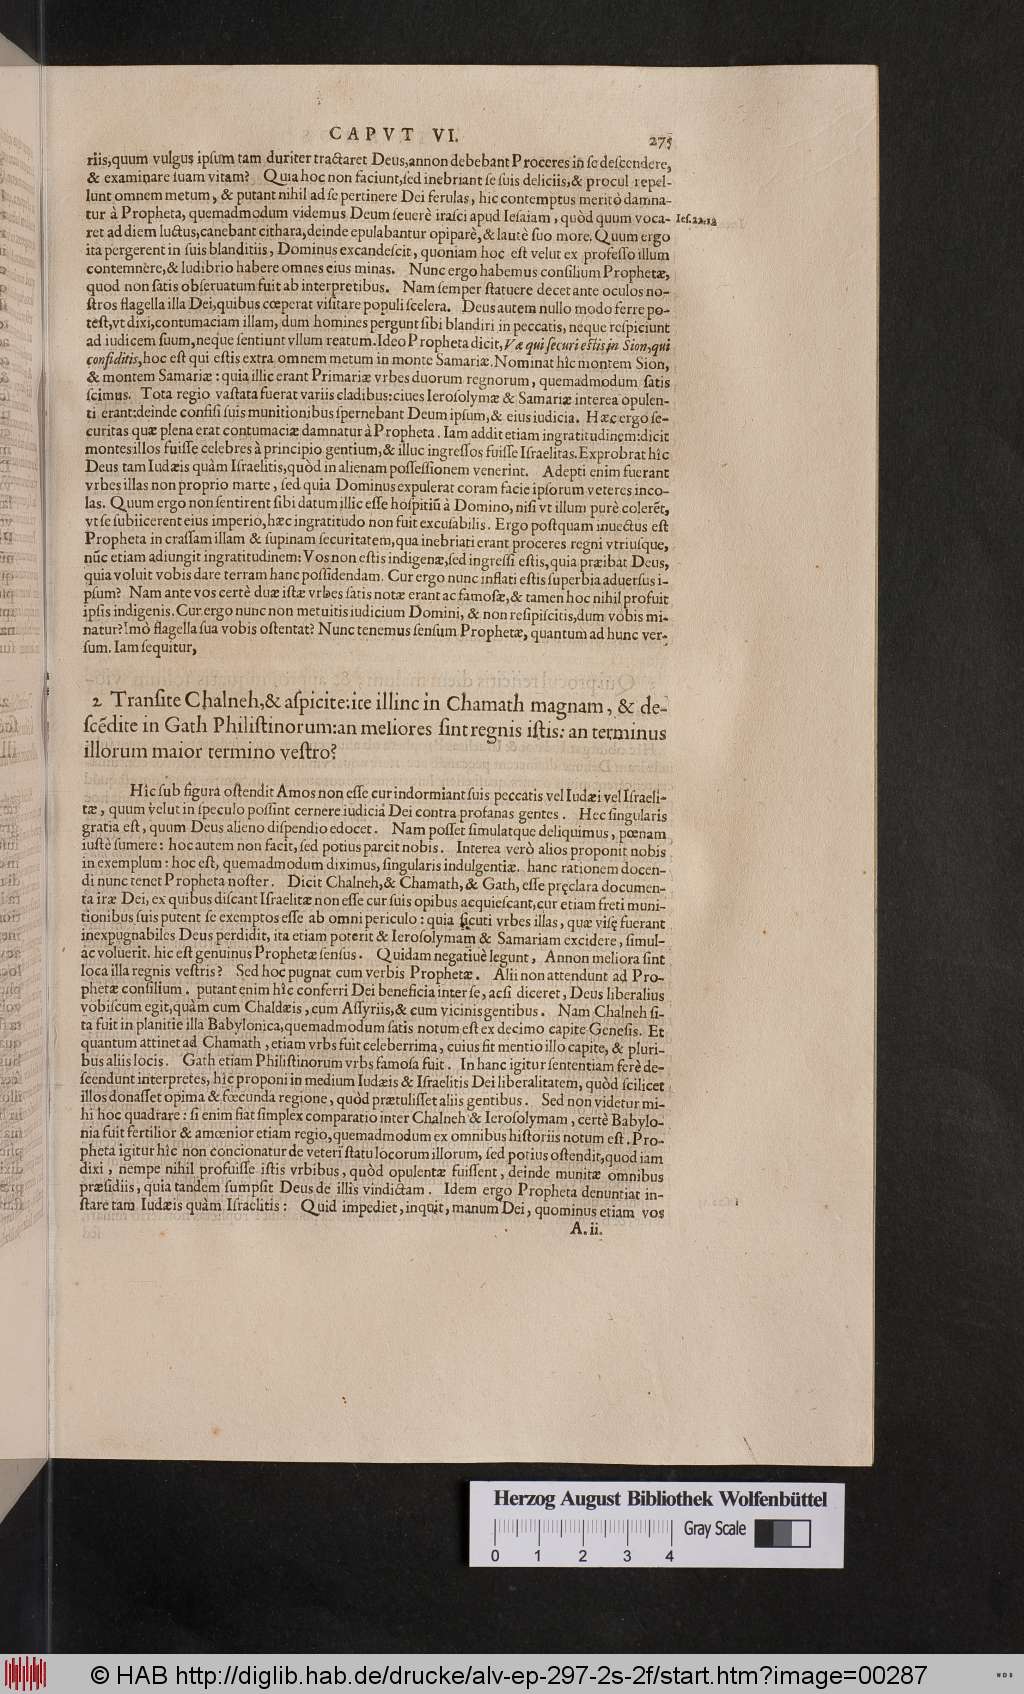 CAPVT VI. 275
riis,quum vulgus ipſum tam duriter tractaret Deus,annon debebant Proceres in ſe deſcendere,
& examinare ſuam vitam? Quia hoc non faciunt,ſed inebriant ſe ſuis deliciis,& procul repel-
lunt omnem metum, & putant nihil ad ſe pertinere Dei ferulas, hic contemptus meritò damna-
tur à Propheta, quemadmodum videmus Deum ſeuerè iraſci apud Ieſaiam, quòd quum voca-
Ieſ.22.12
ret ad diem luctus,canebant cithara,deinde epulabantur opiparè,& lautè ſuo more. Quum ergo
ita pergerent in ſuis blanditiis, Dominus excandeſcit, quoniam hoc eſt velut ex profeſſo illum
contemnere,& ludibrio habere omnes eius minas. Nunc ergo habemus conſilium Prophetæ,
quod non ſatis obſeruatum fuit ab interpretibus. Nam ſemper ſtatuere decet ante oculos no-
ſtros flagella illa Dei,quibus cœperat viſitare populi ſcelera. Deus autem nullo modo ferre po-
teſt,vt dixi,contumaciam illam, dum homines pergunt ſibi blandiri in peccatis, neque reſpiciunt
ad iudicem ſuum,neque ſentiunt vllum reatum.Ideo Propheta dicit,Væ qui ſecuri eſtis in Sion,qui
confiditis,hoc eſt qui eſtis extra omnem metum in monte Samariæ.Nominat hîc montem Sion,
& montem Samariæ : quia illic erant Primariæ vrbes duorum regnorum, quemadmodum ſatis
ſcimus. Tota regio vaſtata fuerat variis cladibus:ciues Ieroſolymæ & Samariæ interea opulen-
ti erant:deinde confiſi ſuis munitionibus ſpernebant Deum ipſum,& eius iudicia. Hæc ergo ſe-
curitas quæ plena erat contumaciæ damnatur à Propheta. Iam addit etiam ingratitudinem:dicit
montes illos fuiſſe celebres à principio gentium,& illuc ingreſſos fuiſſe Iſraelitas.Exprobrat hîc
Deus tam Iudæis quàm Iſraelitis,quòd in alienam poſſeſſionem venerint. Adepti enim fuerant
vrbes illas non proprio marte, ſed quia Dominus expulerat coram facie ipſorum veteres inco-
las. Quum ergo non ſentirent ſibi datum illic eſſe hoſpitiũ à Domino, niſi vt illum purè colerẽt,
vt ſe ſubiicerent eius imperio,hæc ingratitudo non fuit excuſabilis. Ergo poſtquam inuectus eſt
Propheta in craſſam illam & ſupinam ſecuritatem,qua inebriati erant proceres regni vtriuſque,
nũc etiam adiungit ingratitudinem: Vos non eſtis indigenæ,ſed ingreſſi eſtis,quia præibat Deus,
quia voluit vobis dare terram hanc poſſidendam. Cur ergo nunc inflati eſtis ſuperbia aduerſus i-
pſum? Nam ante vos certè duæ iſtæ vrbes ſatis notæ erant ac famoſæ,& tamen hoc nihil profuit
ipſis indigenis.Cur ergo nunc non metuitis iudicium Domini, & non reſipiſcitis,dum vobis mi-
natur?Imò flagella ſua vobis oſtentat? Nunc tenemus ſenſum Prophetæ, quantum ad hunc ver-
ſum. Iam ſequitur,
2 Tranſite Chalneh,& aſpicite:ite illinc in Chamath magnam, & de-
ſcẽdite in Gath Philiſtinorum:an meliores ſint regnis iſtis: an terminus
illorum maior termino veſtro?
Hic ſub figura oſtendit Amos non eſſe cur indormiant ſuis peccatis vel Iudæi vel Iſraeli-
tæ, quum velut in ſpeculo poſſint cernere iudicia Dei contra profanas gentes. Hec ſingularis
gratia eſt, quum Deus alieno diſpendio edocet. Nam poſſet ſimulatque deliquimus, pœnam
iuſtè ſumere: hoc autem non facit,ſed potius parcit nobis. Interea verò alios proponit nobis
in exemplum: hoc eſt, quemadmodum diximus, ſingularis indulgentiæ. hanc rationem docen-
di nunc tenet Propheta noſter. Dicit Chalneh,& Chamath,& Gath, eſſe pręclara documen-
ta iræ Dei, ex quibus diſcant Iſraelitæ non eſſe cur ſuis opibus acquieſcant,cur etiam freti muni-
tionibus ſuis putent ſe exemptos eſſe ab omni periculo : quia ſicuti vrbes illas, quæ viſę fuerant
inexpugnabiles Deus perdidit, ita etiam poterit & Ieroſolymam & Samariam excidere, ſimul-
ac voluerit. hic eſt genuinus Prophetæ ſenſus. Quidam negatiuè legunt, Annon meliora ſint
loca illa regnis veſtris? Sed hoc pugnat cum verbis Prophetæ. Alii non attendunt ad Pro-
phetæ conſilium. putant enim hîc conferri Dei beneficia inter ſe, acſi diceret, Deus liberalius
vobiſcum egit,quàm cum Chaldæis, cum Aſſyriis,& cum vicinis gentibus. Nam Chalneh ſi-
ta fuit in planitie illa Babylonica,quemadmodum ſatis notum eſt ex decimo capite Geneſis. Et
quantum attinet ad Chamath, etiam vrbs fuit celeberrima, cuius fit mentio illo capite, & pluri-
bus aliis locis. Gath etiam Philiſtinorum vrbs famoſa fuit. In hanc igitur ſententiam ferè de-
ſcendunt interpretes, hîc proponi in medium Iudæis & Iſraelitis Dei liberalitatem, quòd ſcilicet
illos donaſſet opima & fœcunda regione, quòd prætuliſſet aliis gentibus. Sed non videtur mi-
hi hoc quadrare : ſi enim fiat ſimplex comparatio inter Chalneh & Ieroſolymam, certè Babylo-
nia fuit fertilior & amœnior etiam regio,quemadmodum ex omnibus hiſtoriis notum eſt. Pro-
pheta igitur hîc non concionatur de veteri ſtatu locorum illorum, ſed potius oſtendit,quod iam
dixi, nempe nihil profuiſſe iſtis vrbibus, quòd opulentæ fuiſſent, deinde munitæ omnibus
præſidiis, quia tandem ſumpſit Deus de illis vindictam. Idem ergo Propheta denuntiat in-
ſtare tam Iudæis quàm Iſraelitis: Quid impediet, inquit, manum Dei, quominus etiam vos
A. ii.
Herzog August Bibliothek Wolfenbüttel
Gray Scale
0 1 2 3 4
© HAB http://diglib.hab.de/drucke/alv-ep-297-2s-2f/start.htm?image=00287